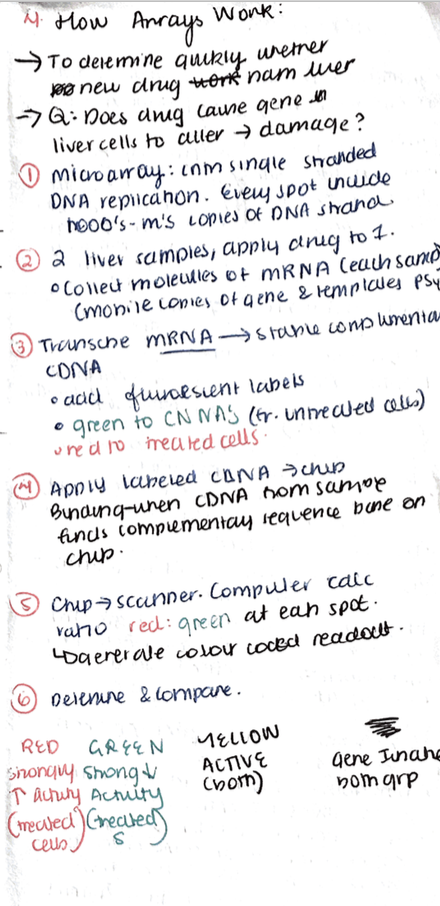 4. How Arrays Work:
→ To determine quickly whether
new drug work harm liver
→ Q: Does drug cause gene in
liver cells to alter → damage?
① Microarray: inm single stranded
DNA replication. Every spot include
1000's - m's copies of DNA strand.
② 2 liver samples, apply drug to 1.
• Collect molecules of mRNA (each samp
(mobile copies of gene & templates PSy
③ Transcribe mRNA → stable complimenta
CDNA
• add fluorescient labels
• green to CNNAS (fr. untreated cells)
• red to treated cells.
④ Apply labeled CDNA → chip
Binding-when CDNA from sample
finds complementary sequence base on
chip.
⑤ Chip → scanner. Computer calc
ratio red: green at each spot.
↳ Generate colour coded readout.
⑥ Determine & compare.
RED GREEN YELLOW
strongly strong ↓ ACTIVE Gene Inactive
↑ Activity Activity (both) both grp
(treated (treated)
cells) s